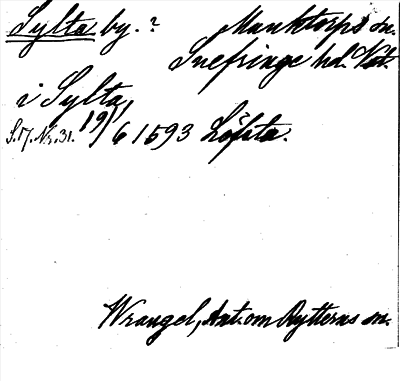 Sylta by. ? Munktorps sn.
Snefringe hd. Vstm.
i Sylta,
S. 17. Nr. 31. 19/6 1593 Löfsta.
Wrangel, Ant. om Rytterns sn.